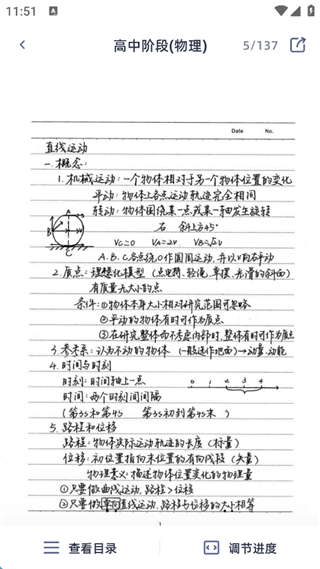 11:51
高中阶段(物理)
5/137
Date No.
直线运动
一.概念：
1.机械运动：一个物体相对于另一个物体位置的变化
平动：物体上各点运动轨迹完全相同
转动：物体围绕某一点或某一轴发生旋转
A
B
C
右 斜上方45°
Vc=0 VA=2V VB=√2V
A.B.C各点绕O作圆周运动，并以V向右平动
2.质点：理想化模型（点电荷、轻绳、单摆、光滑的斜面）
有质量无大小的点
条件：①物体本身大小相对研究范围可忽略
②平动的物体有时可作为质点
③在研究整体而不考虑内部时，整体有时可作为质点
3.参考系：认为不动的物体（一般选作地面）→动量、动能
4.时间与时刻
时刻：时间轴上一点
0 1 2 3 4
时间：两个时刻间间隔
（第3s和第4s 第3s初到第4s末）
5.路程和位移
路程：物体实际运动轨迹的长度（标量）
位移：初位置指向末位置的有向线段（矢量）
物理意义：描述物体位置变化的物理量
①只要做曲线运动，路程>位移
②只要做单向直线运动，路程与位移的大小相等
1
查看目录
调节进度